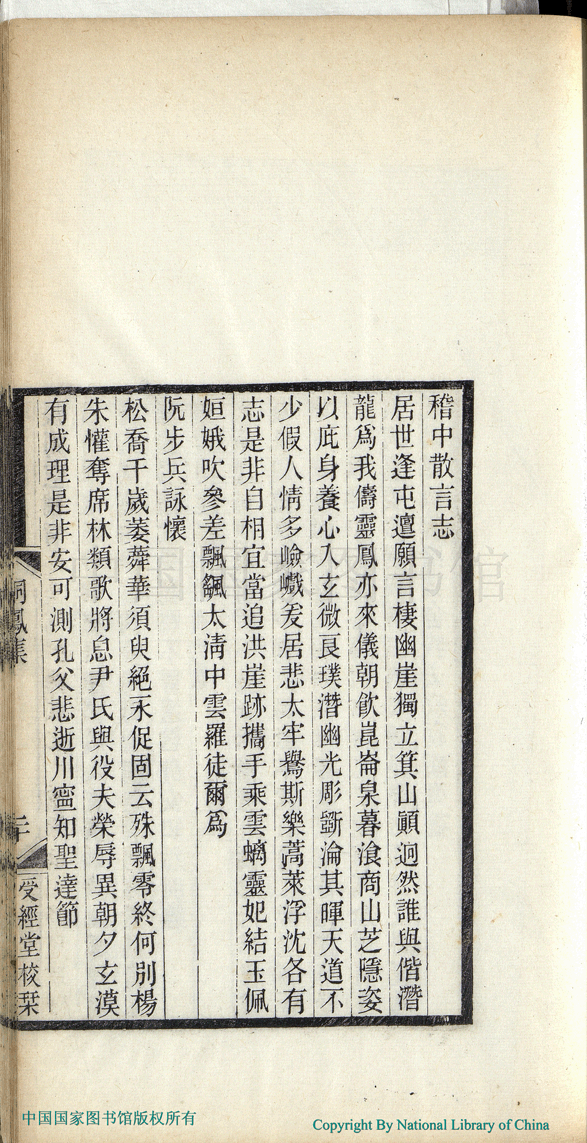 稽中散言志
居世逢屯邅願言棲幽崖獨立箕山顛迥然誰與偕潛
龍為我儔靈鳳亦來儀朝飲崑崙泉暮飡商山芝隱姿
以庇身養心入玄微良璞潛幽光彫斵淪其暉天道不
少假人情多嶮巇爰居悲太牢鷽斯樂蒿萊浮沈各有
志是非自相宜當追洪崖跡攜手乘雲螭靈妃結玉佩
姮娥吹參差飄颻太淸中雲羅徒爾爲
阮步兵詠懷
松喬千歲萎蕣華須臾絕永促固云殊飄零終何別楊
朱懽奪席林類歌將息尹氏與役夫榮辱異朝夕玄漠
有成理是非安可測孔父悲逝川寧知聖達節
桐鳳集
二
受經堂校栞
中国国家图书馆
中国国家图书馆版权所有
Copyright By National Library of China